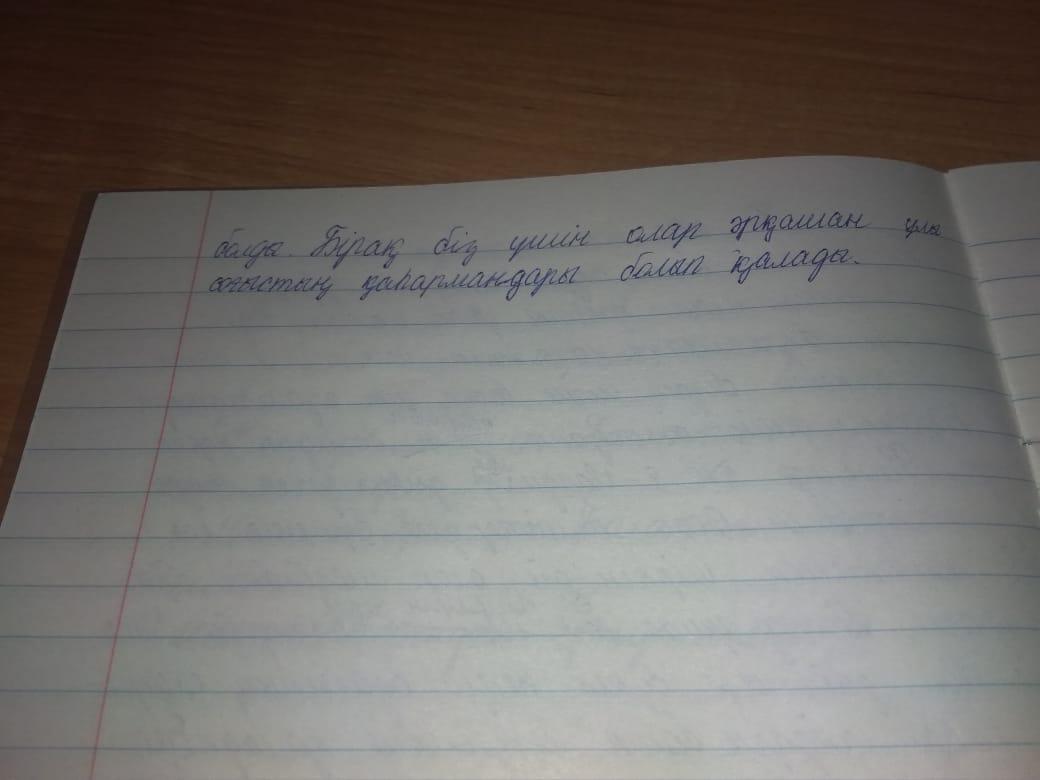 болды. Бірақ біз үшін олар әрқашан ұлы
соғыстың қаһармандары болып қалады.